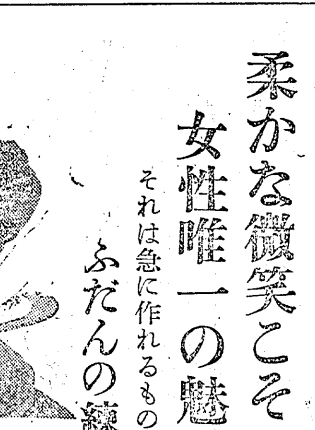 柔かな微笑こそ
女性唯一の魅
それは急に作れるもの
ふだんの練